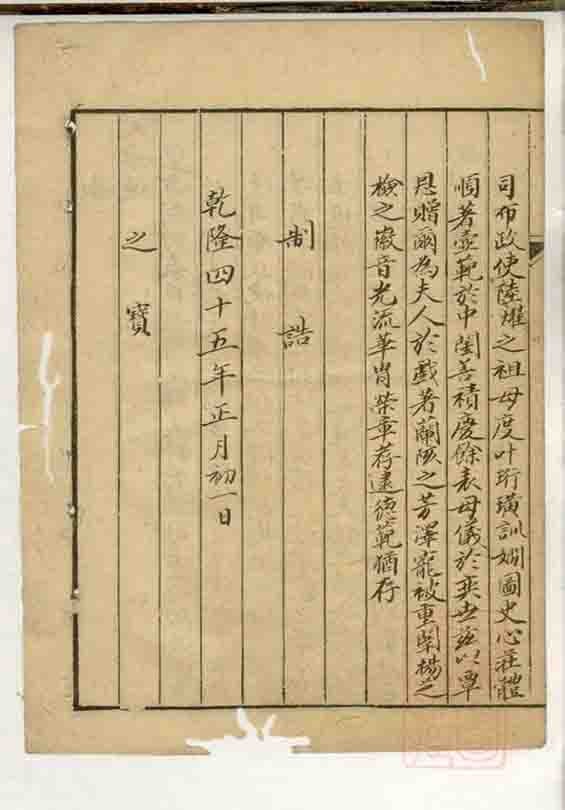 司布政使陸燿之祖母度叶珩璜訓嫺圖史心莊體
順著壼範於中閨善積慶餘表母儀於奕世茲以覃
恩贈爾為夫人於戲著蘭陔之芳澤寵被重闈揚芝
檢之徽音光流華胄榮章荐逮徳範猶存
制誥
乾隆四十五年正月初一日
之寶